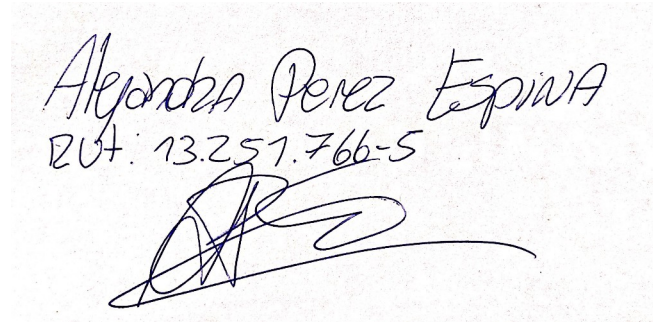 Alejandra Perez Espina
Rut: 13.251.766-5